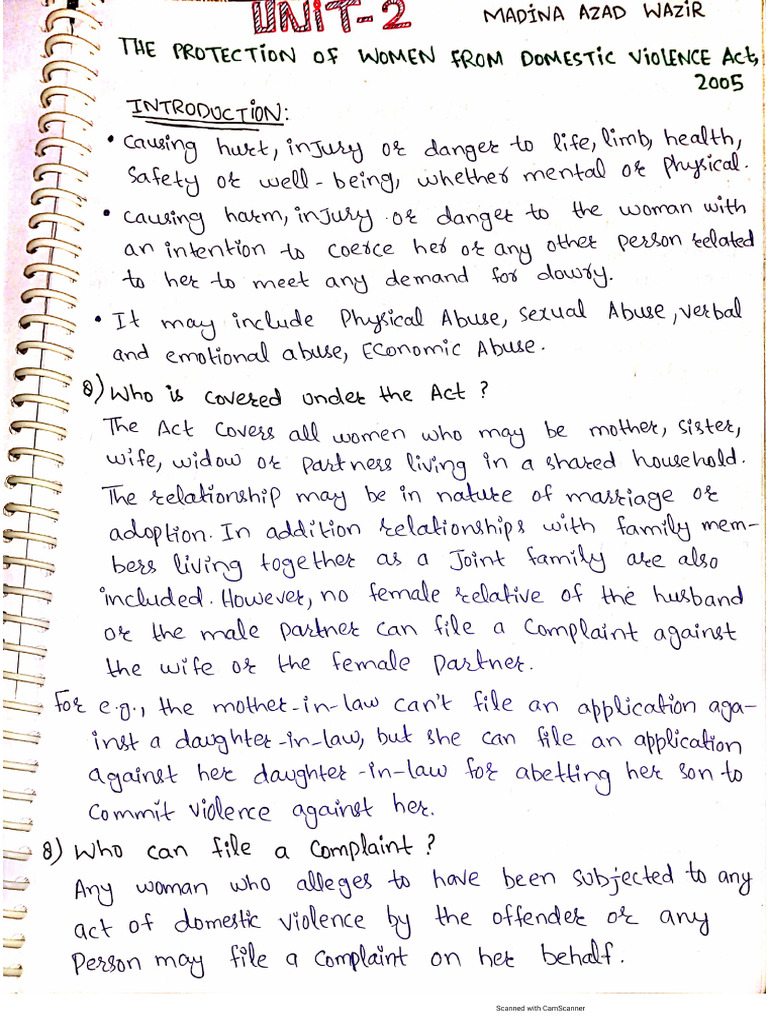 UNIT-2
MADINA AZAD WAZIR
THE PROTECTION OF WOMEN FROM DOMESTIC VIOLENCE ACT,
2005
INTRODUCTION:
• Causing hurt, injury or danger to life, limb, health,
safety or well-being, whether mental or physical.
• Causing harm, injury or danger to the woman with
an intention to coerce her or any other person related
to her to meet any demand for dowry.
• It may include Physical Abuse, Sexual Abuse, verbal
and emotional abuse, Economic Abuse.
8) Who is covered under the Act?
The Act covers all women who may be mother, sister,
wife, widow or partners living in a shared household.
The relationship may be in nature of marriage or
adoption. In addition relationships with family mem-
bers living together as a Joint family are also
included. However, no female relative of the husband
or the male partner can file a complaint against
the wife or the female partner.
For e.g., the mother-in-law can't file an application aga-
inst a daughter-in-law, but she can file an application
against her daughter-in-law for abetting her son to
commit violence against her.
8) Who can file a complaint?
Any woman who alleges to have been subjected to any
act of domestic violence by the offender or any
person may file a complaint on her behalf.
Scanned with CamScanner